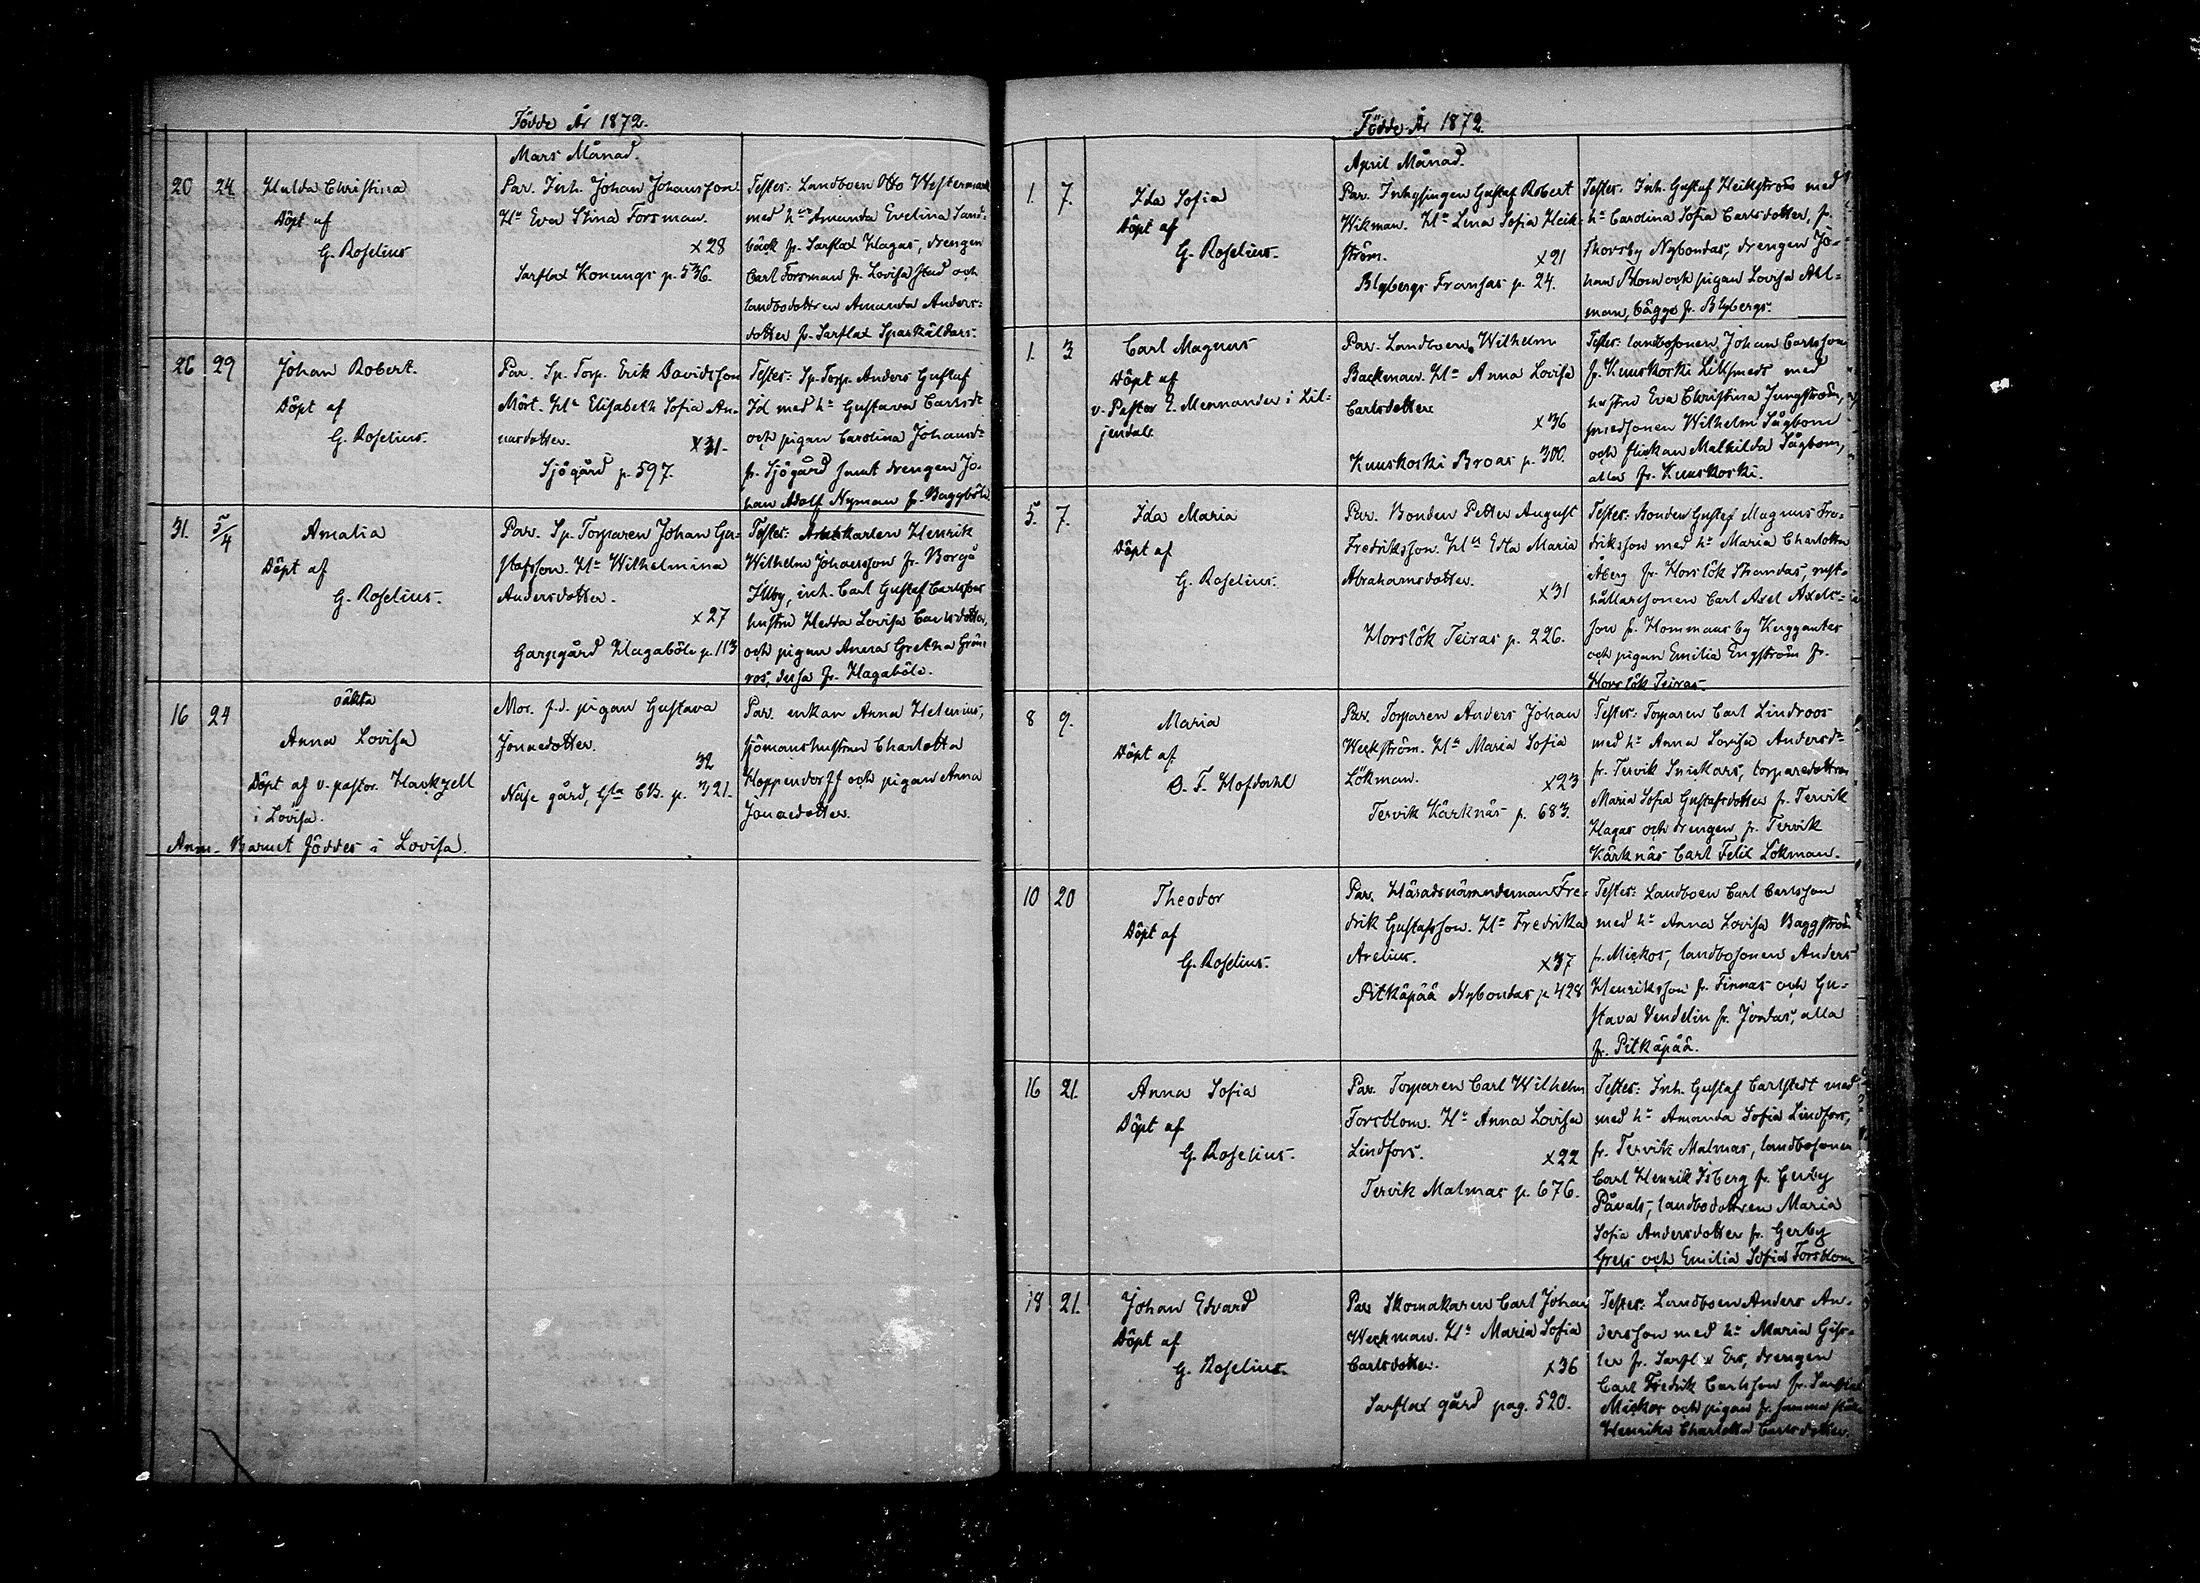 Födde År 1872.
Mars Månad.
20 24 Hulda Christina
Döpt af
G. Roselius
Par. Inh. Johan Johansson
Hu Eva Stina Forsman.
x28
Sarflax Konungs p. 536.
Testes: Landboen Otto Westermark
med hu Amanda Evelina Sand-
bäck fr. Sarflax Hagas, drengen
Carl Forsman fr. Lovisa stad och
landbodottren Amanda Anders-
dotter fr. Sarflax Sparkäldars.
26 29 Johan Robert.
Döpt af
G. Roselius.
Par. Sp. Torp. Erik Davidsson
Mört. Hu Elisabeth Sofia An-
narsdotter.
x31-
Sjögård p. 597.
Testes: Sp. Torp. Anders Gustaf
Id med hu Gustava Carlsdr
och pigan Carolina Johansdr
fr. Sjögård samt drengen Jo-
han Adolf Nyman fr. Baggböle
31. 5/4 Amalia
Döpt af
G. Roselius.
Par. Sp. Torparen Johan Gu-
stafsson. Hu Wilhelmina
Andersdotter.
x27
Garpgård Hagaböle p. 113
Testes: Arbetskarlen Henrik
Wilhelm Johansson fr. Borgå
Illby, inh. Carl Gustaf Carlssons
hustru Hedda Lovisa Carlsdotter,
och pigan Anna Gretha Grön-
ros, dessa fr. Hagaböle.
oäkta
16 24 Anna Lovisa
Döpt af v. pastor
i Lovisa.
Anm. Barnet föddes i Lovisa.
Mor. f.d. pigan Gustava
Jonaedotter.
32
Näse gård, Gla CB. p. 321.
Par. enkan Anna Helenius,
sjömanshustrun Charlotta
Hoppendorff och pigan Anna
Jonaedotter.
Födde År 1872.
April Månad.
1. 7. Ida Sofia
Döpt af
G. Roselius.
Par. Inhysingen Gustaf Robert
Wikman. Hu Lena Sofia Heik-
ström.
x21
Blybergs Fransas p. 24.
Testes: Inh. Gustaf Heikström med
hu Carolina Sofia Carlsdotter, fr.
Thorsby Nybondas, drengen Jo-
han Blom och pigan Lovisa Ahl-
man, bägge fr. Blybergs.
1. 3 Carl Magnus
Döpt af
v. Pastor E. Mennander i Lil-
jendal.
Par. Landboen Wilhelm
Backman. Hu Anna Lovisa
Carlsdotter
x36
Kuuskoski Broas p. 300.
Testes: landbosonen Johan Carlsson
fr. Kuuskoski Lillsmeds med
hustru Eva Christina Jungström,
smedsonen Wilhelm Sågbom
och flickan Mathilda Sågbom,
alla fr. Kuuskoski.
5. 7. Ida Maria
Döpt af
G. Roselius.
Par. Bonden Petter August
Fredriksson. Hu Edla Maria
Abrahamsdotter.
x31
Horslök Teiras p. 226.
Testes: Bonden Gustaf Magnus Fre-
driksson med hu Maria Charlotta
Åberg fr. Horslök Strandas, rust-
hållarsonen Carl Axel Axels-
son fr. Hommansby Kuggantes
och pigan Emilia Engström fr.
Horslök Teiras.
8 9. Maria
Döpt af
O. F. Hofdahl
Par. Torparen Anders Johan
Weckström. Hu Maria Sofia
Lökman.
x23
Tervik Kärknäs p. 683.
Testes: Torparen Carl Lindroos
med hu Anna Lovisa Andersdr
fr. Tervik Snickars, torparedottren
Maria Sofia Gustafsdotter fr. Tervik
Hagas och drengen fr. Tervik
Kärknäs Carl Felix Lökman.
10 20 Theodor
Döpt af
G. Roselius.
Par. Häradsnämndeman Fre-
drik Gustafsson. Hu Fredrika
Arelius.
x37
Pitkäpää Nybondas p. 428
Testes: Landboen Carl Carlsson
med hu Anna Lovisa Baggström
fr. Mickos, landbosonen Anders
Henriksson fr. Finnas och Gu-
stava Vendelin fr. Jordas, alla
fr. Pitkäpää.
16 21. Anna Sofia
Döpt af
G. Roselius.
Par. Torparen Carl Wilhelm
Forsblom. Hu Anna Lovisa
Lindfors.
x22
Tervik Malmas p. 676.
Testes: Inh. Gustaf Carlstedt med
med hu Amanda Sofia Lindfors,
fr. Tervik Malmas, landbosonen
Carl Henrik Isberg fr. Gerby
Påvals, landbodottren Maria
Sofia Andersdotter fr. Gerby
Grels och Emilia Sofia Forsblom
18 21. Johan Edvard
Döpt af
G. Roselius.
Par. Skomakaren Carl Johan
Weckman. Hu Maria Sofia
Carlsdotter.
x36
Sarflax gård pag. 520.
Testes: Landboen Anders An-
dersson med hu Maria Giss-
ler fr. Sarflax Ers, drengen
Carl Fredrik Carlsson fr. Sarflax
Mickos och pigan fr. samma ställe
Henrika Charlotta Carlsdotter.